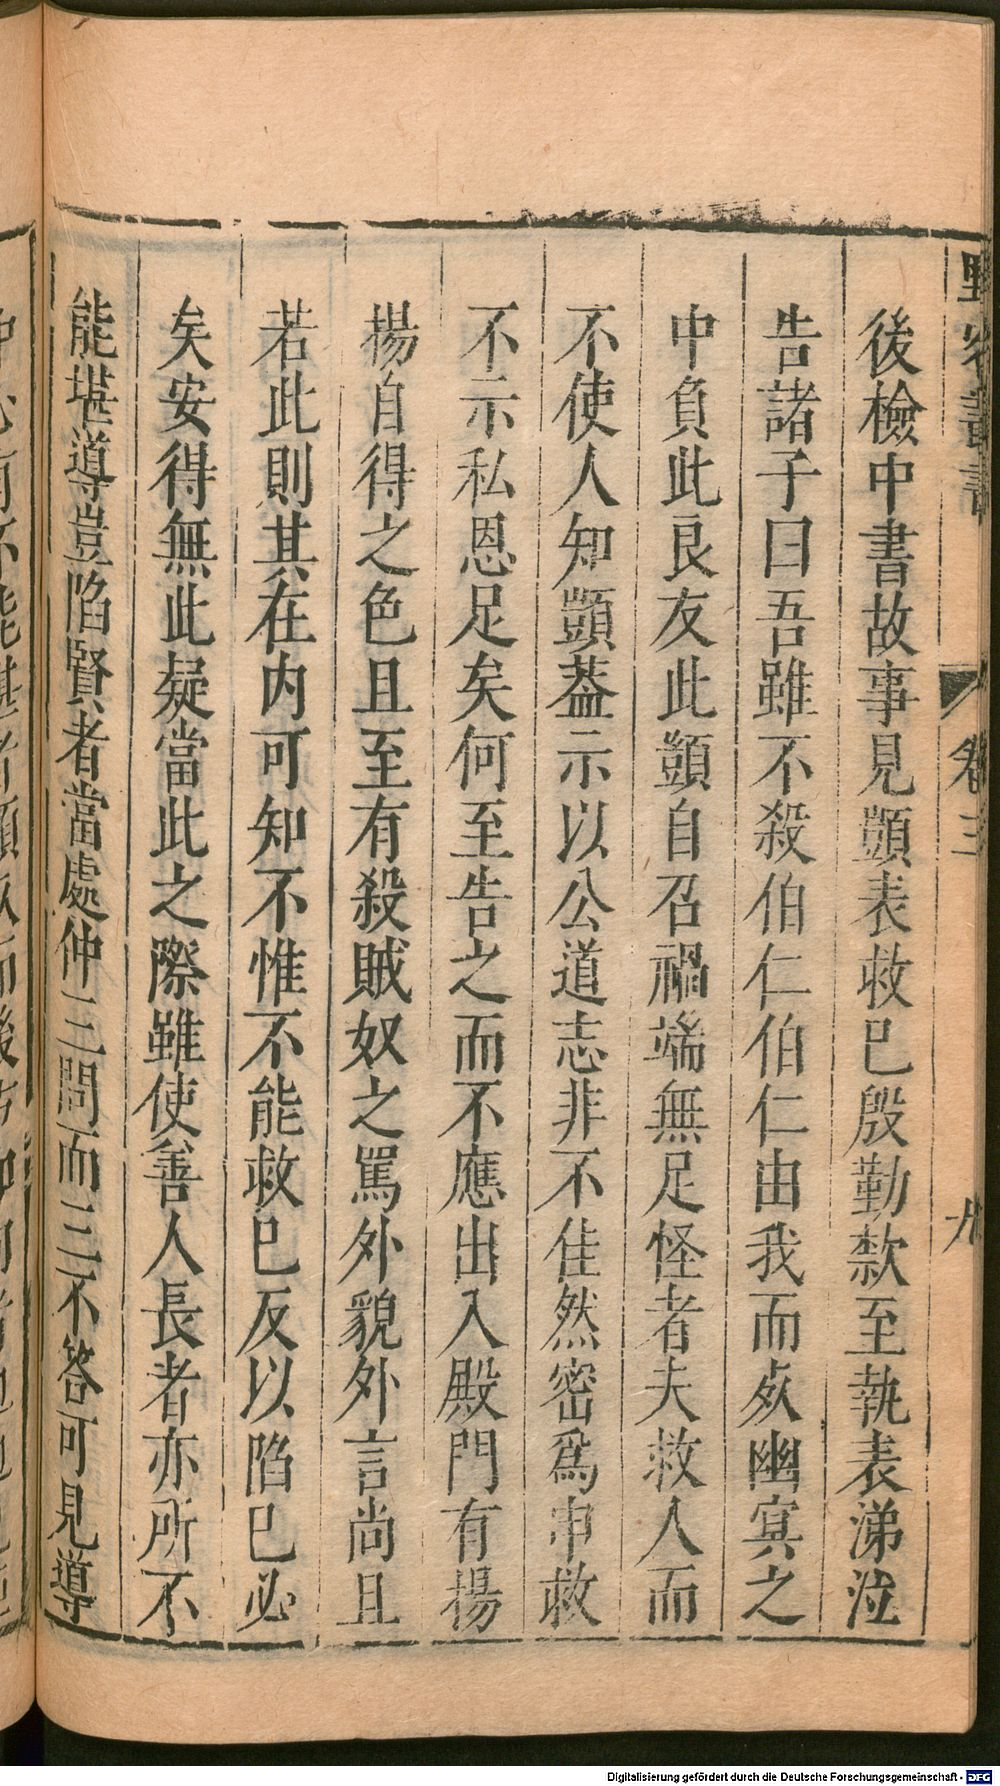 野客叢書
卷三
九
後檢中書故事見顗表救已殷勤欵至執表涕泣
告諸子曰吾雖不殺伯仁伯仁由我而死幽冥之
中負此良友此顗自召禍端無足怪者夫救人而
不使人知顗葢示以公道志非不佳然密爲申救
不示私恩足矣何至告之而不應出入殿門有揚
揚自得之色且至有殺賊奴之罵外貌外言尚且
若此則其在内可知不惟不能救已反以陷已必
矣安得無此疑當此之際雖使善人長者亦所不
能堪導豈陷賢者當處仲三問而三不答可見導
Digitalisierung gefördert durch die Deutsche Forschungsgemeinschaft - DFG